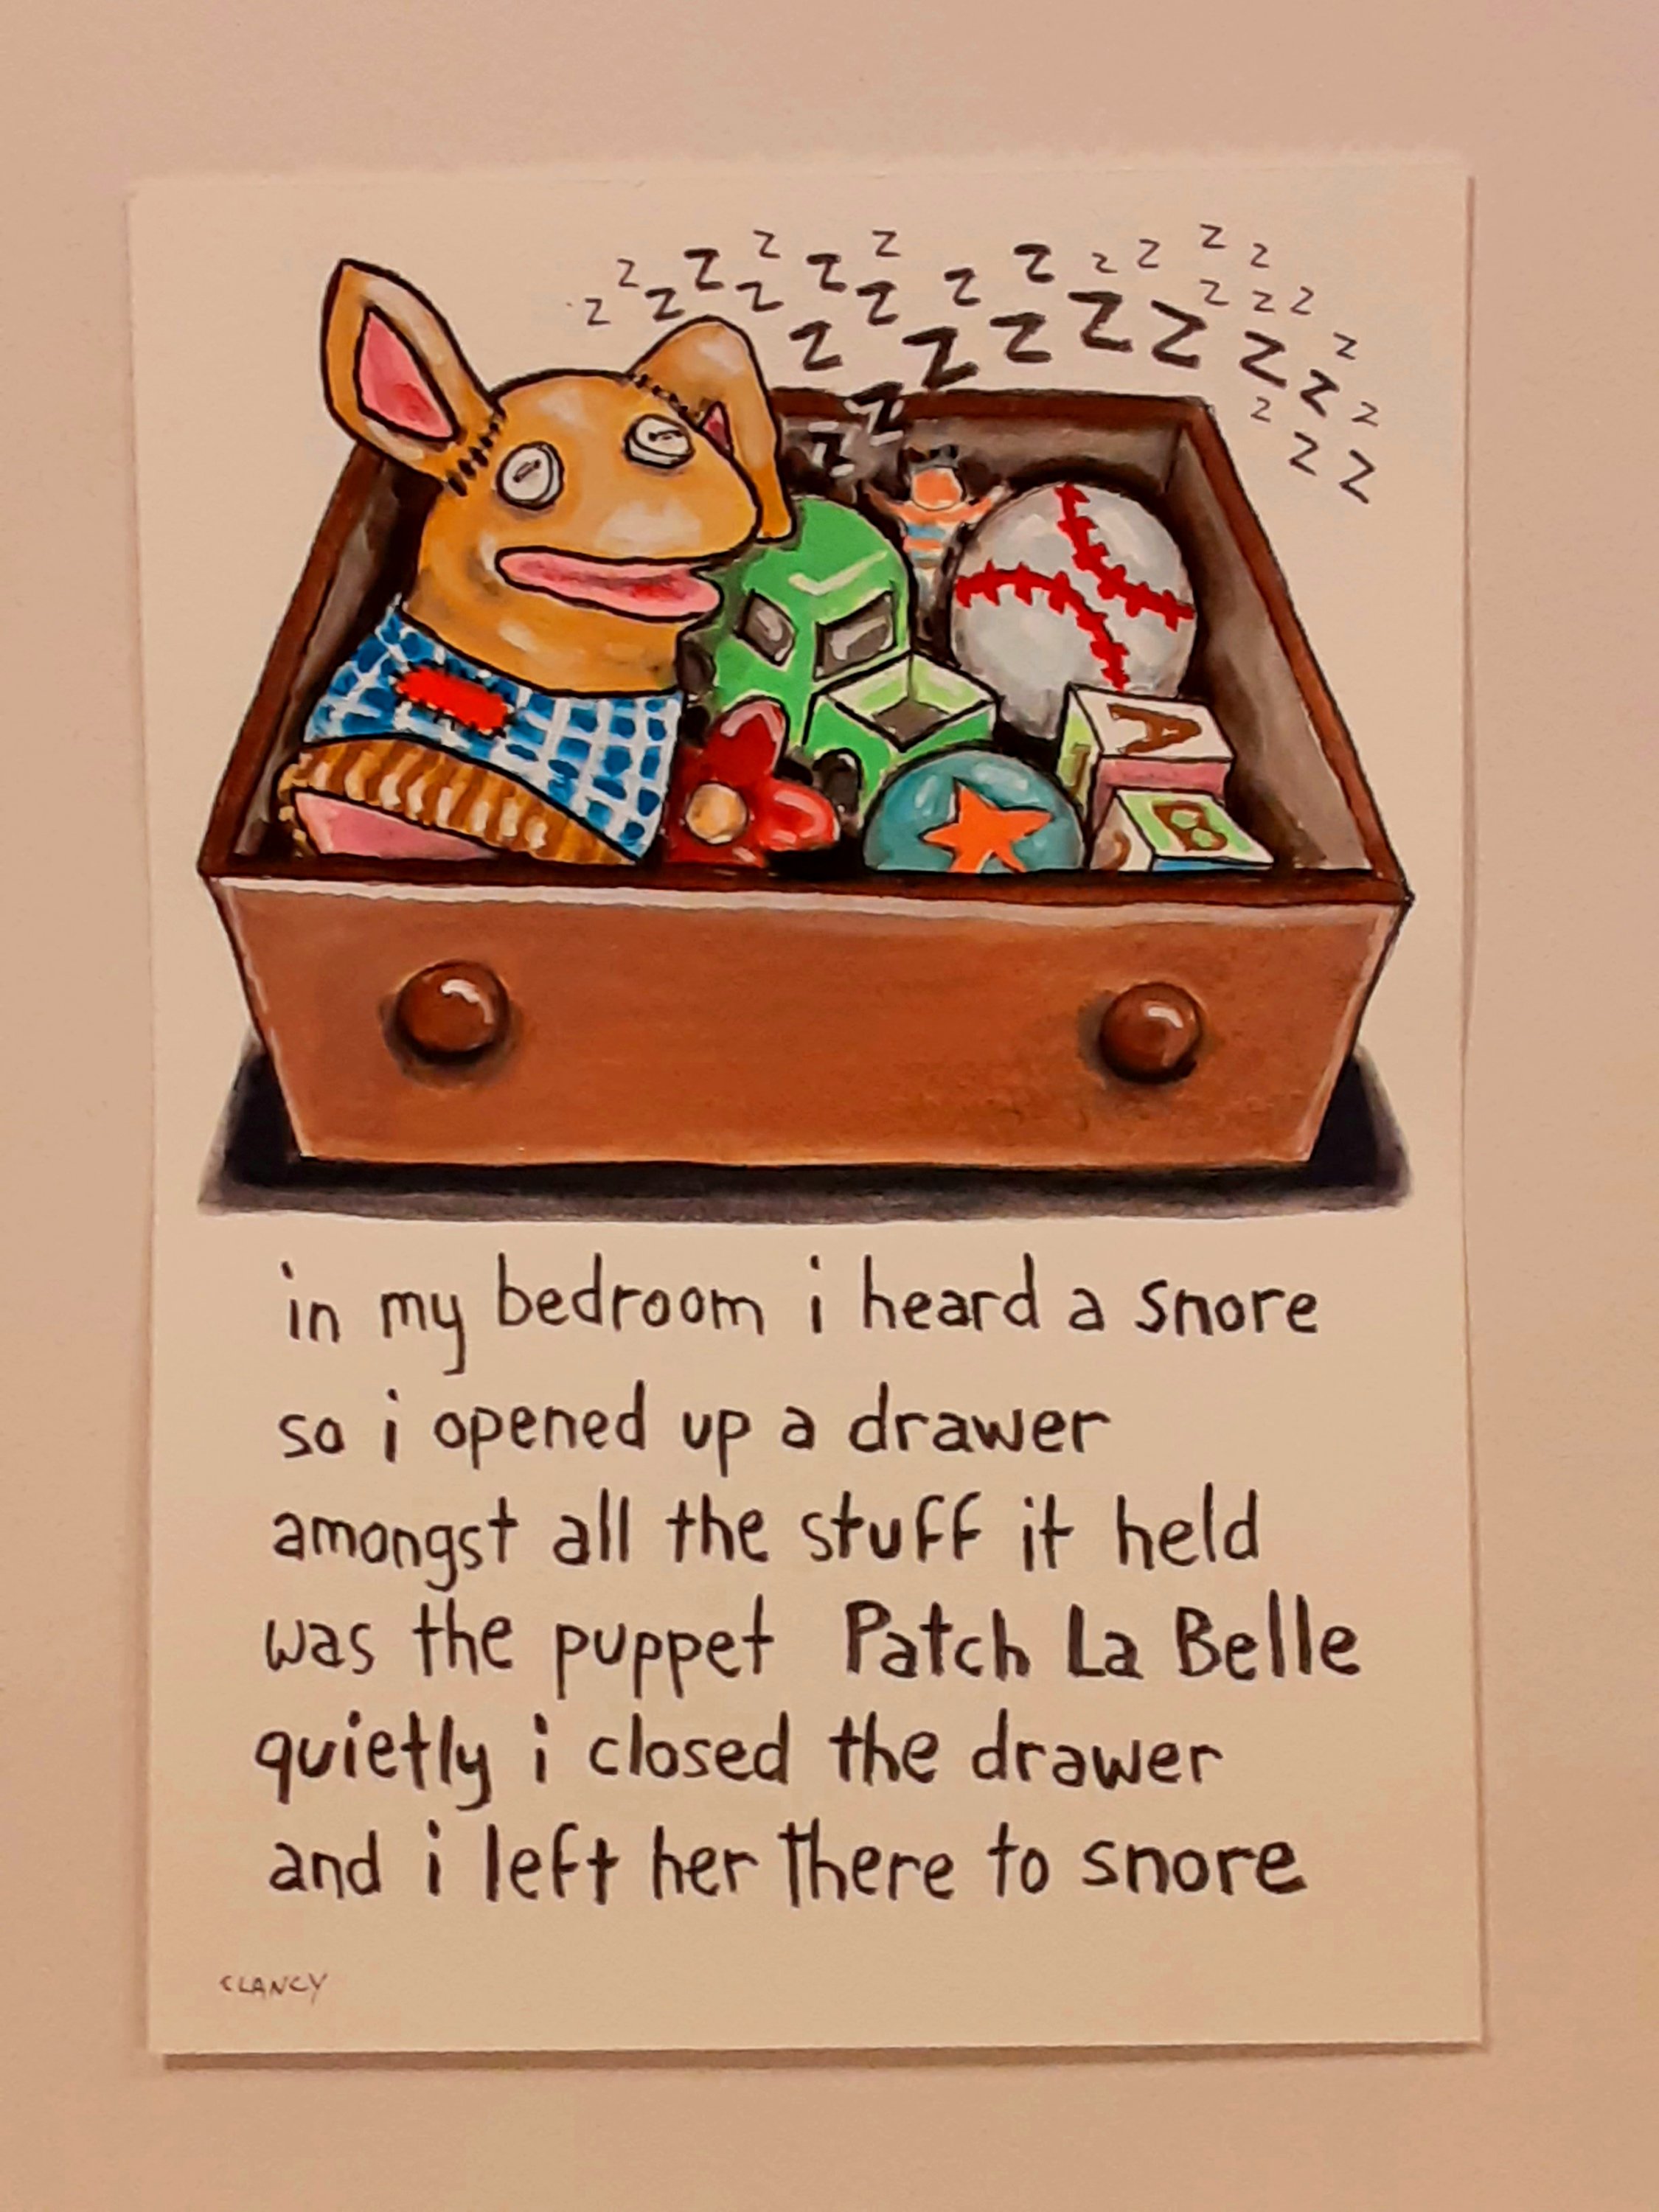 in my bedroom i heard a snore
so i opened up a drawer
amongst all the stuff it held
was the puppet Patch La Belle
quietly i closed the drawer
and i left her there to snore
CLANCY
z z z z z z z z z z z z z z z z z z z z z z z z z z z z z z z z z z z z z
A
B